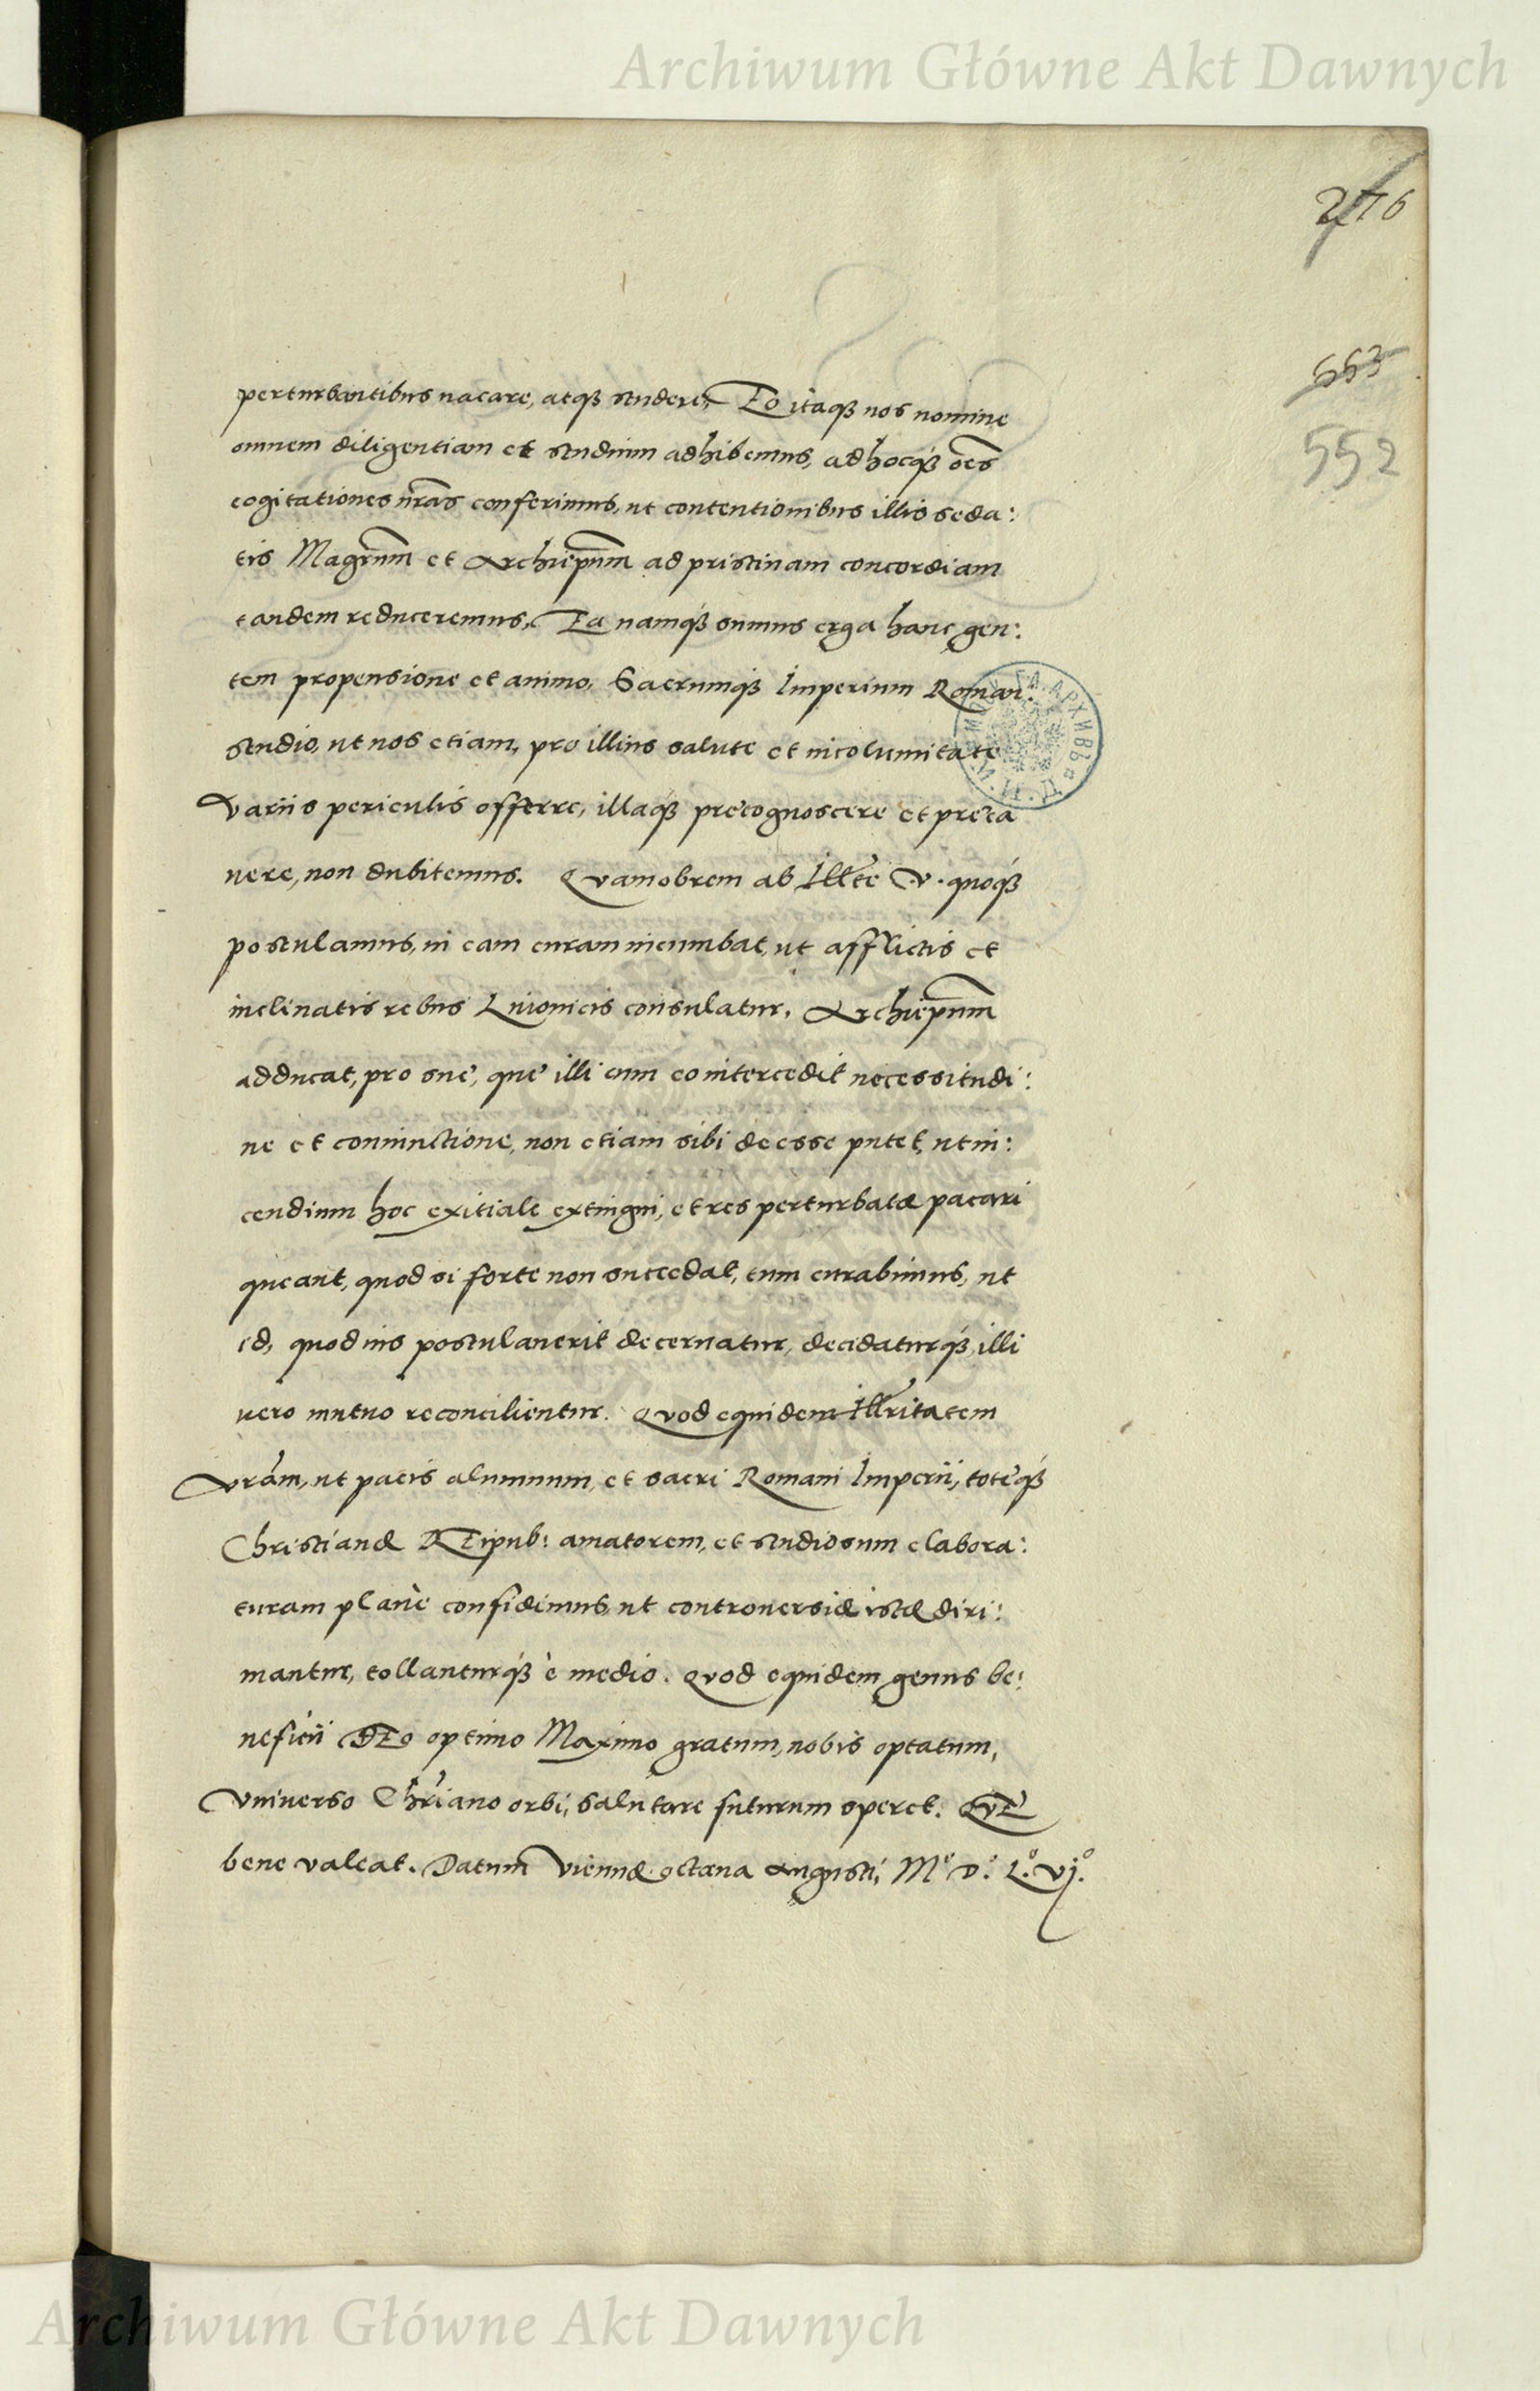 Archiwum Główne Akt Dawnych
276
553
552
perturbantibus uacare, atq; studere, Eo itaq; nos nomine
omnem diligentiam et studium adhibemus, ad hocq; oēs
cogitationes nr̄as conferimus, ut contentionibus illis seda:
tis Magr̄um et Archiep̄um ad pristinam concordiam
tandem reduceremus, Ea namq; sumus erga hanc gen:
tem propensione et animo, Sacrumq; Imperium Roman:
studio, ut nos etiam, pro illius salute et incolumitate
Variis periculis offerre, illaq; precognoscere et preca
uere, non dubitemus. Quamobrem ab Ill̄te V. quoq;
postulamus, in eam curam incumbat, ut afflictis et
inclinatis rebus Liuonicis consulatur, Archiep̄um
adducat, pro sue, que illi cum eo intercedit necessitudi:
ne et coniunctione, non etiam sibi deesse putet, ut in:
cendium hoc exitiale extingui, et res perturbatæ pacari
queant, quod si forte non succedat, tum curabimus, ut
id, quod ius postulauerit decernatur, decidaturq; illi
uero mutuo reconcilientur. Quod equidem Ill̄ritatem
Vrām, ut pacis alumnum, et sacri Romani Imperii, toteq;
Christianæ REipub: amatorem, et studiosum elabora:
turam planè confidimus, ut controuersiæ istæ diri:
mantur, tollanturq; è medio. Quod equidem genus be:
neficii DEo optimo Maximo gratum, nobis optatum,
Vniuerso Chr̄iano orbi, salutare futurum speret. QuE
bene valeat. Datum Viennæ octaua Augusti, Mº Dº. Lº. Vjº.
Archiwum Główne Akt Dawnych